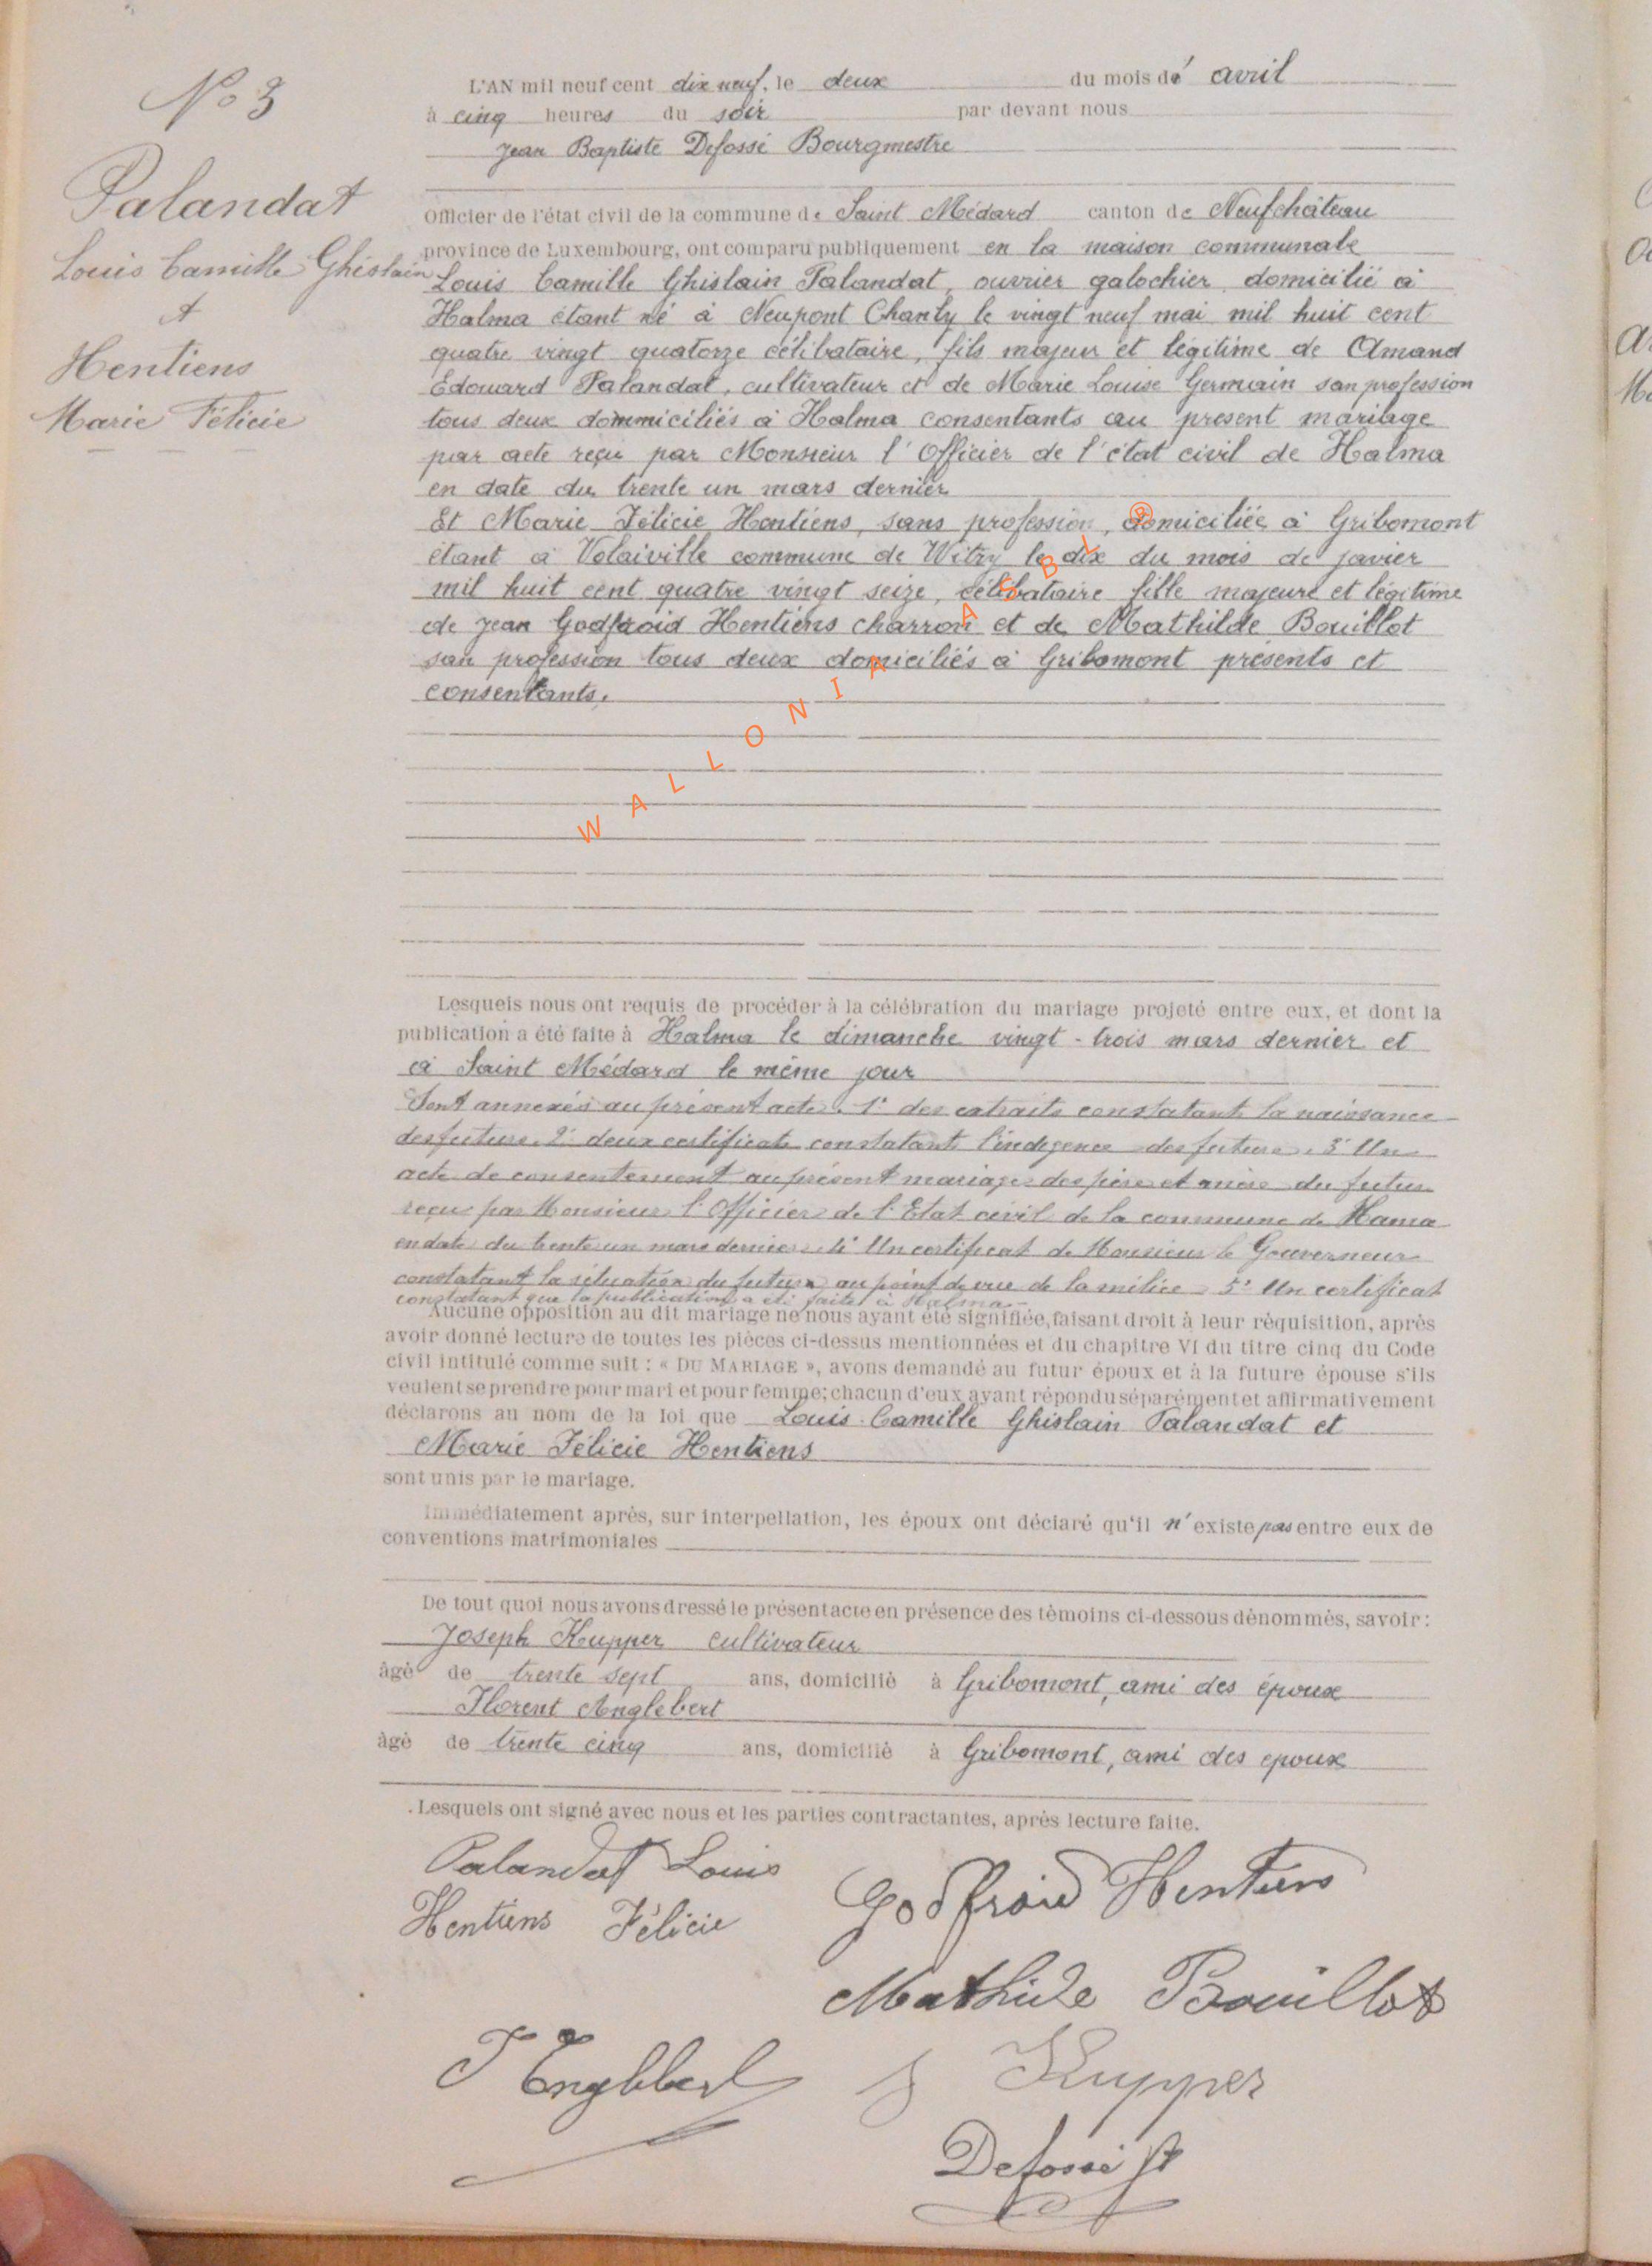 No 3
Palandat
Louis Camille Ghislain
&
Hentiens
Marie Félicie
L'AN mil neuf cent dix neuf, le deux du mois de avril
à cinq heures du soir par devant nous
Jean Baptiste Defossé Bourgmestre
Officier de l'état civil de la commune de Saint Médard canton de Neufchâteau
province de Luxembourg, ont comparu publiquement en la maison communale
Louis Camille Ghislain Palandat, ouvrier galochier domicilié à
Halma étant né à Neupont Chanly le vingt neuf mai mil huit cent
quatre vingt quatorze célibataire, fils majeur et légitime de Amand
Edouard Palandat, cultivateur et de Marie Louise Germain san profession
tous deux dommiciliés à Halma consentants au present mariage
par acte reçu par Monsieur l'Officier de l'état civil de Halma
en date du trente un mars dernier
Et Marie Félicie Hentiens, sans profession, domiciliée à Gribomont
étant à Volaiville commune de Witry le dix du mois de javier
mil huit cent quatre vingt seize, célibataire fille majeure et légitime
de Jean Godfroid Hentiens charron et de Mathilde Bouillot
san profession tous deux domiciliés à Gribomont présents et
consentants.
WALLONIA ASBL ®
Lesquels nous ont requis de procéder à la célébration du mariage projeté entre eux, et dont la
publication a été faite à Halma le dimanche vingt-trois mars dernier et
à Saint Médard le même jour
Sont annexés au présent acte. 1° des extraits constatant la naissance
des futurs. 2° deux certificats constatant l'indigence des futurs. 3° Un
acte de consentement au présent mariage des père et mère du futur
reçu par Monsieur l'Officier de l'Etat civil de la commune de Hama
en date du trente un mars dernier. 4° Un certificat de Monsieur le Gouverneur
constatant la situation du futur au point de vue de la milice 5° Un certificat
constatant que la publication a été faite à Halma
Aucune opposition au dit mariage ne nous ayant été signifiée, faisant droit à leur réquisition, après
avoir donné lecture de toutes les pièces ci-dessus mentionnées et du chapitre VI du titre cinq du Code
civil intitulé comme suit : « DU MARIAGE », avons demandé au futur époux et à la future épouse s'ils
veulent se prendre pour mari et pour femme; chacun d'eux ayant répondu séparément et affirmativement
déclarons au nom de la loi que Louis Camille Ghislain Palandat et
Marie Félicie Hentiens
sont unis par le mariage.
Immédiatement après, sur interpellation, les époux ont déclaré qu'il n'existe pas entre eux de
conventions matrimoniales
De tout quoi nous avons dressé le présent acte en présence des témoins ci-dessous dénommés, savoir :
Joseph Kupper cultivateur
âgé de trente sept ans, domicilié à Gribomont, ami des époux
Florent Anglebert
âgé de trente cinq ans, domicilié à Gribomont, ami des epoux
Lesquels ont signé avec nous et les parties contractantes, après lecture faite.
Palandat Louis
Godfroid Hentiens
Hentiens Félicie
Mathilde Bouillot
J Kupper
Defossé